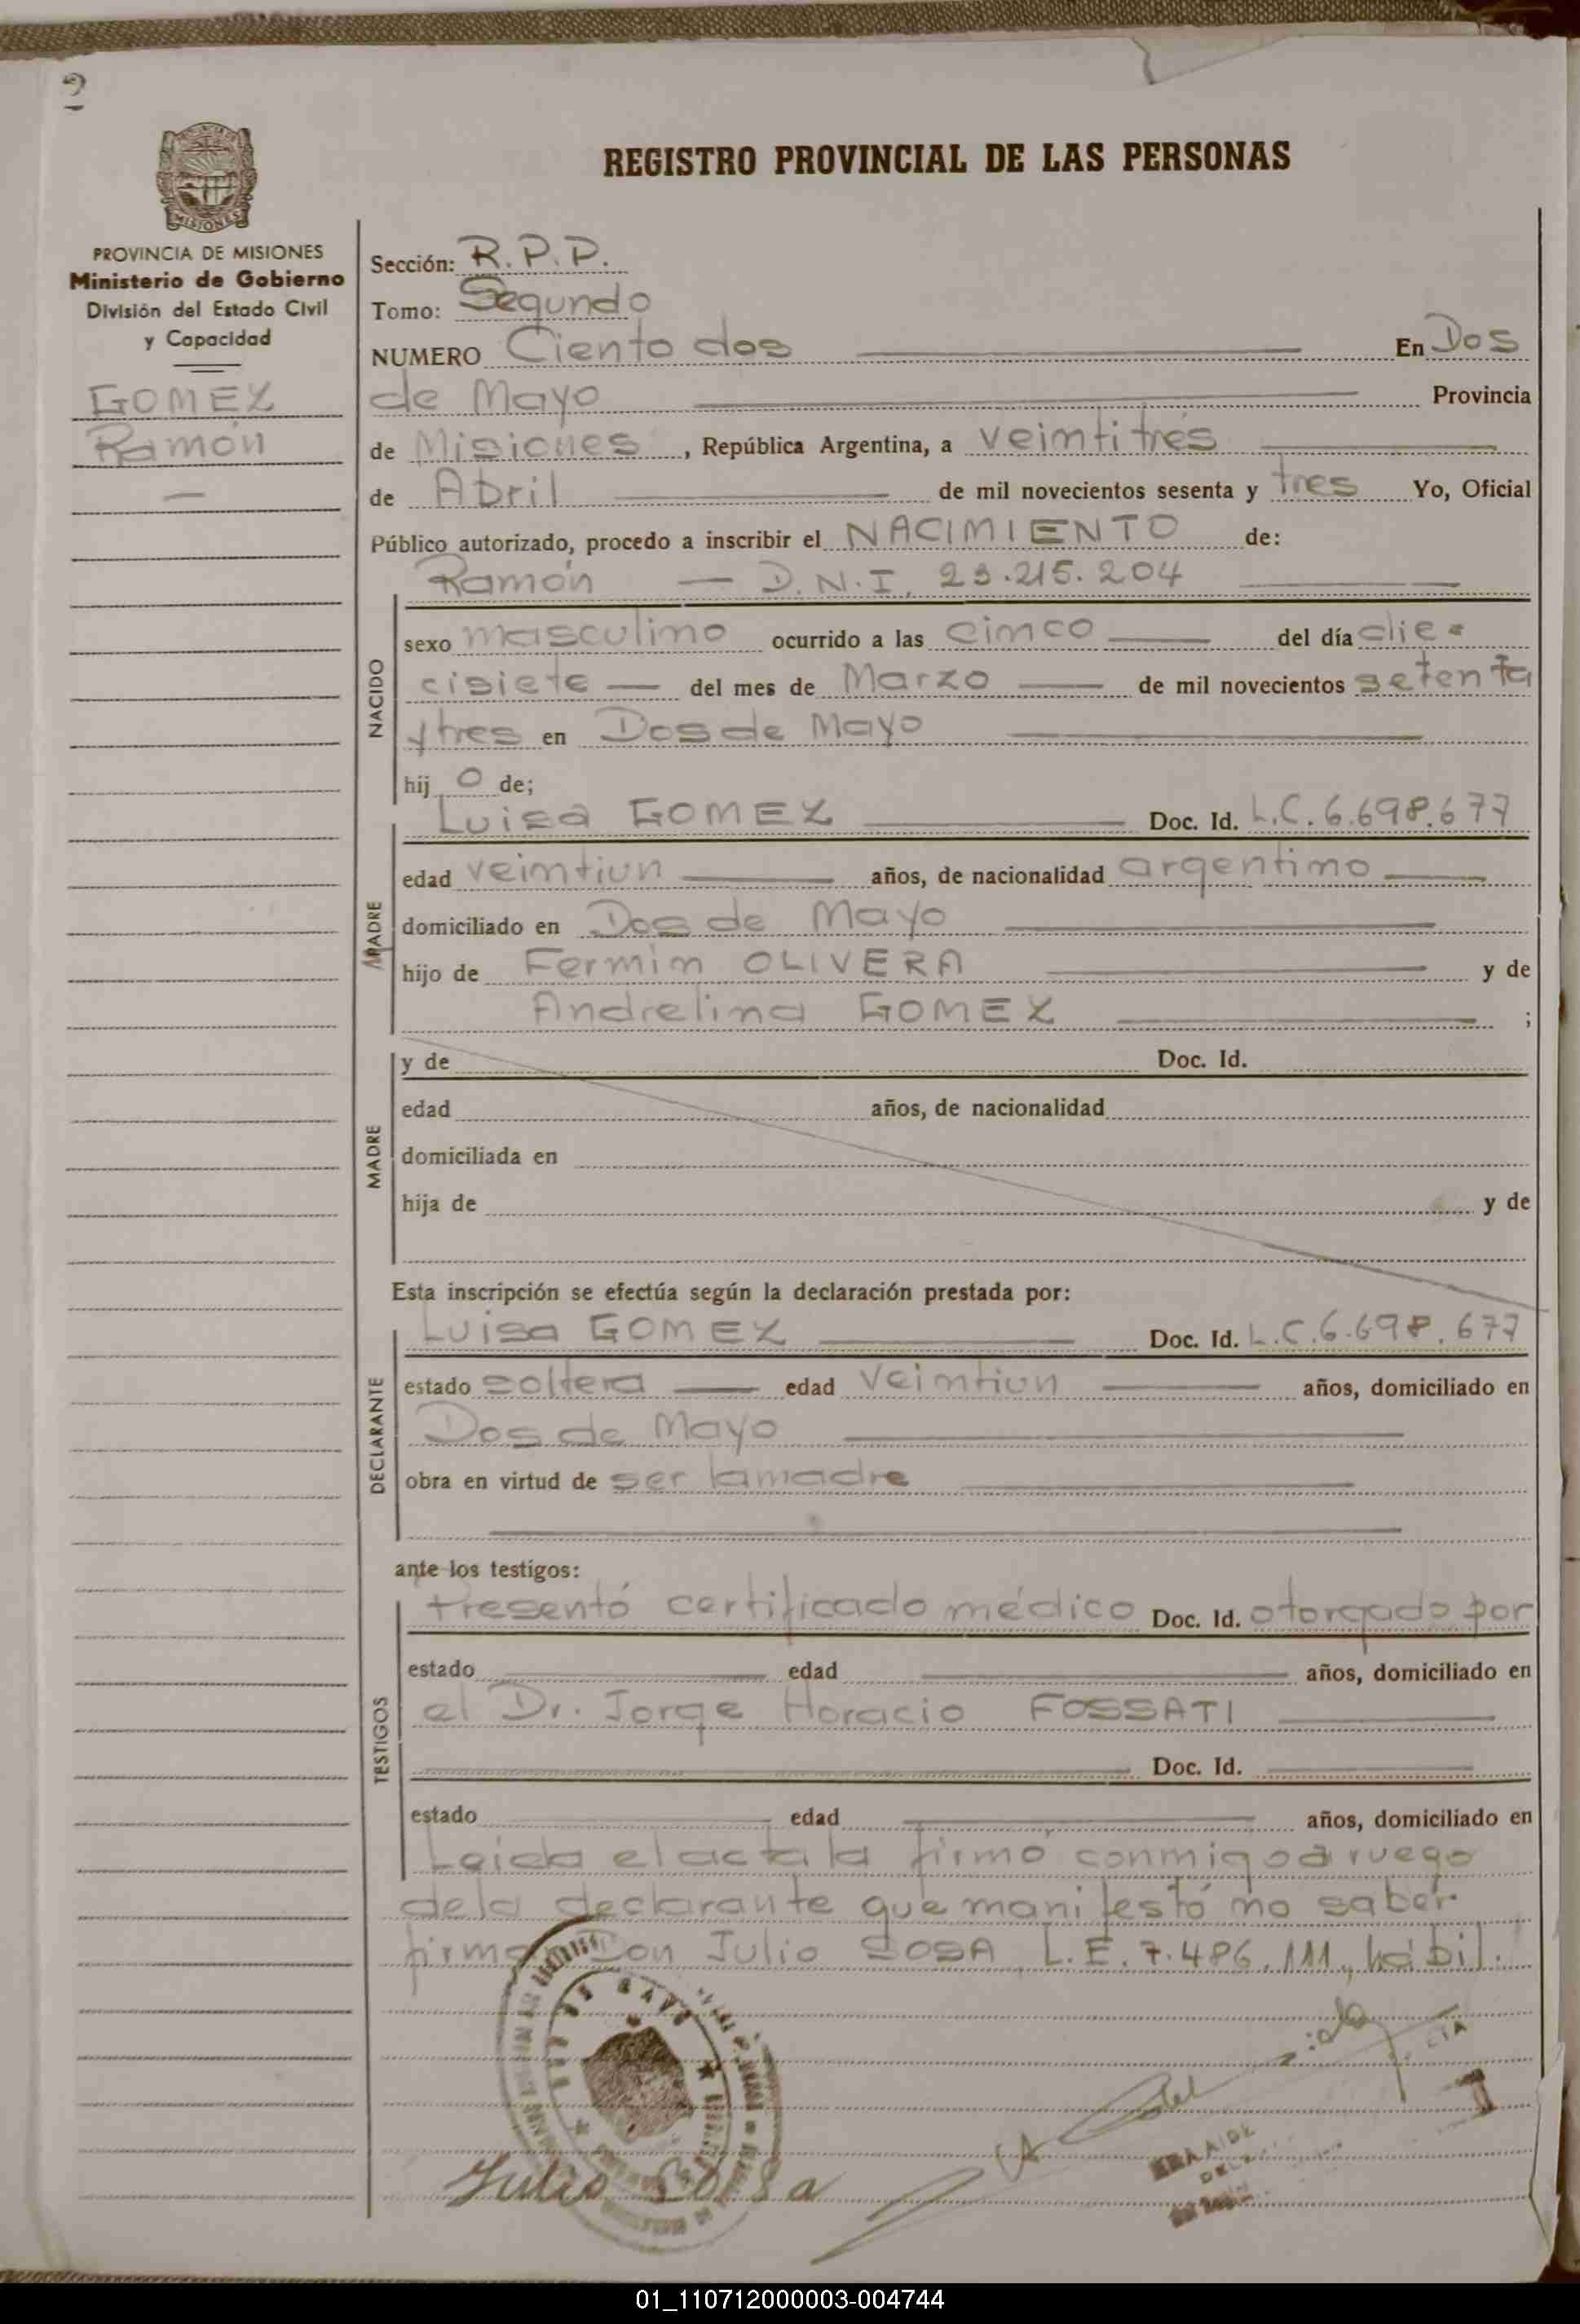 2
MISIONES
REGISTRO PROVINCIAL DE LAS PERSONAS
PROVINCIA DE MISIONES
Ministerio de Gobierno
División del Estado Civil
y Capacidad
GOMEZ
Ramón
Sección: R.P.P.
Tomo: Segundo
NUMERO Ciento dos En Dos
de Mayo Provincia
de Misiones, República Argentina, a veintitrés
de Abril de mil novecientos sesenta y tres Yo, Oficial
Público autorizado, procedo a inscribir el NACIMIENTO de:
Ramón — D.N.I. 23.215.204
NACIDO
sexo masculino ocurrido a las cinco del día die=
cisiete — del mes de Marzo — de mil novecientos setenta
y tres en Dos de Mayo
hijo de;
Luisa GOMEZ Doc. Id. L.C.6.698.677
MADRE
edad veintiun años, de nacionalidad argentino
domiciliado en Dos de Mayo
hijo de Fermin OLIVERA y de
Andrelina GOMEZ ;
MADRE
y de Doc. Id.
edad años, de nacionalidad
domiciliada en
hija de y de
Esta inscripción se efectúa según la declaración prestada por:
Luisa GOMEZ Doc. Id. L.C.6.698.677
DECLARANTE
estado soltera — edad veintiun años, domiciliado en
Dos de Mayo
obra en virtud de ser la madre
ante los testigos:
Presentó certificado médico Doc. Id. otorgado por
TESTIGOS
estado edad años, domiciliado en
el Dr. Jorge Horacio FOSSATI
Doc. Id.
estado edad años, domiciliado en
Leida el acta la firmó conmigo a ruego
de la declarante que manifestó no saber
firmar Don Julio SOSA, L.E. 7.486.111, hábil.
DOS DE MAYO
Julio Sosa
01_110712000003-004744